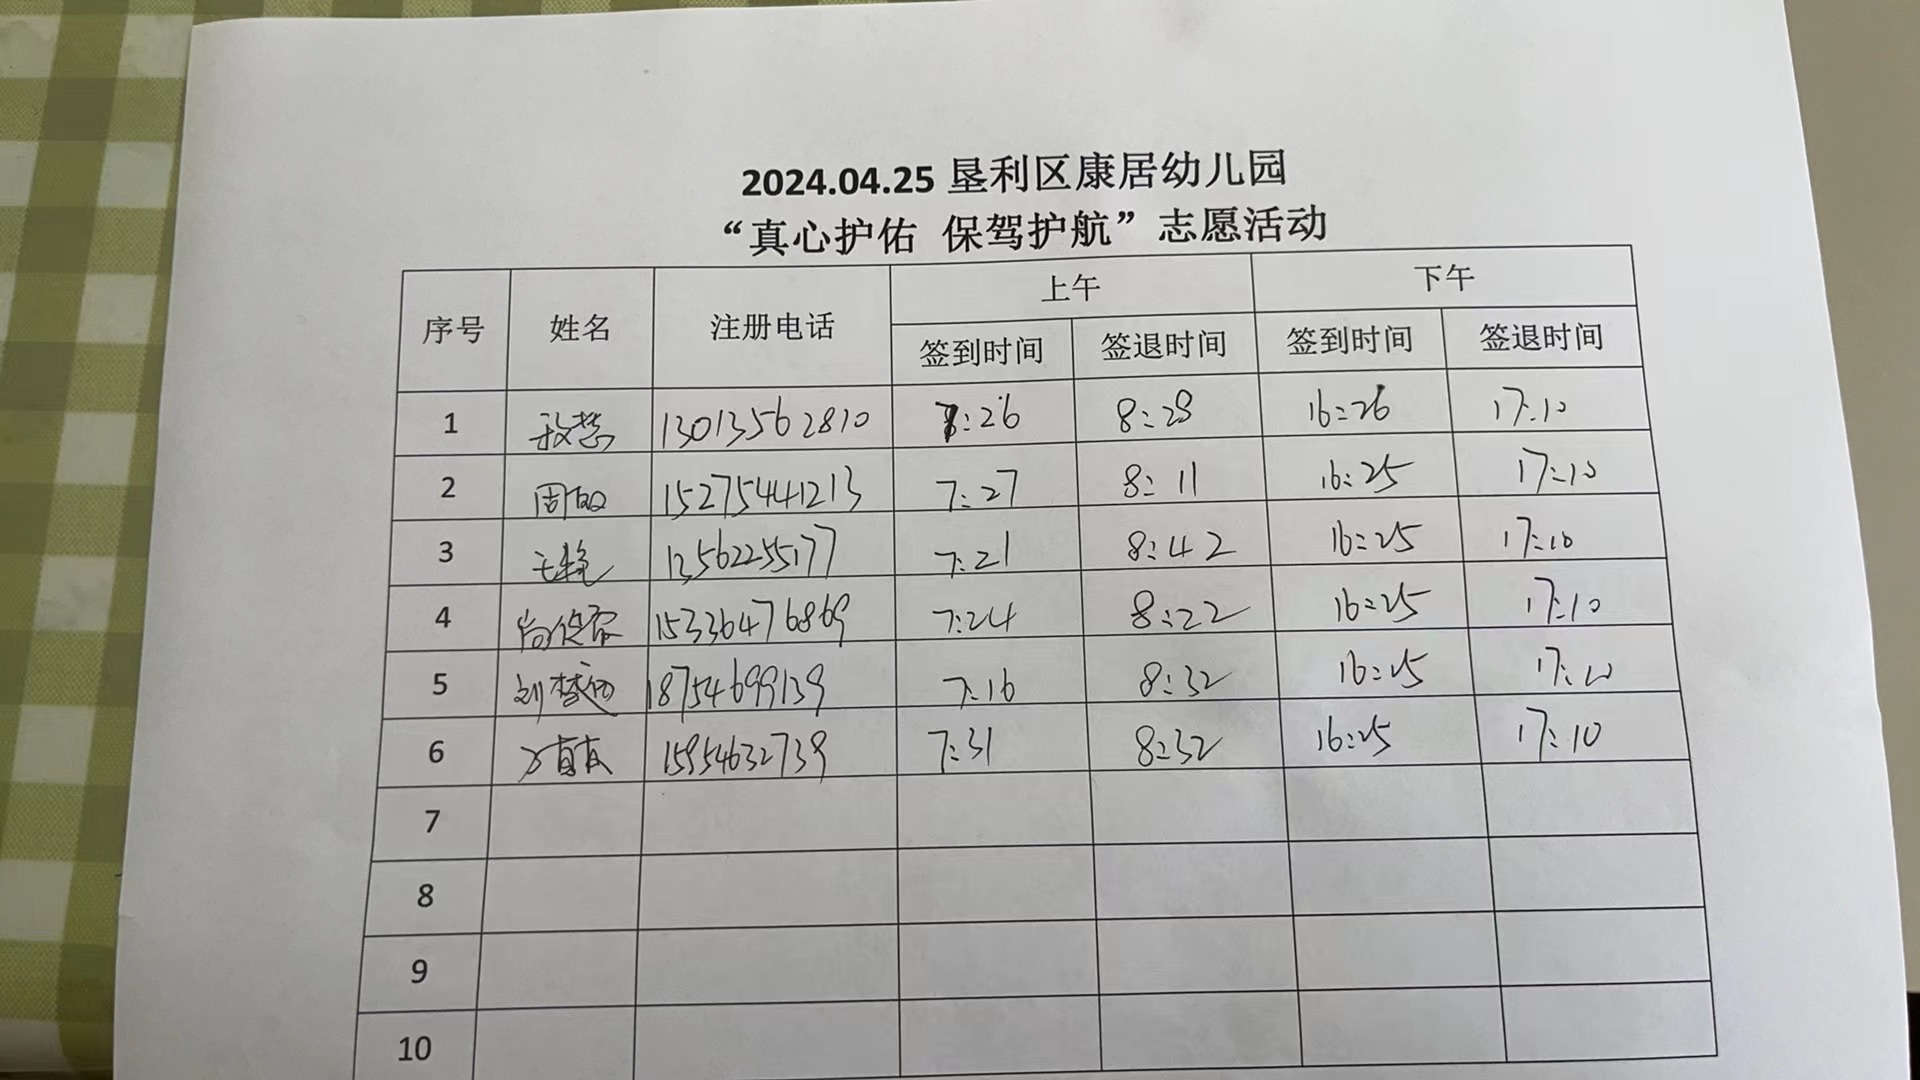 2024.04.25 垦利区康居幼儿园
“真心护佑 保驾护航”志愿活动
序号 姓名 注册电话 上午 下午
签到时间 签退时间 签到时间 签退时间
1 13013562810 7:26 8:28 16:26 17:10
2 周敏 15275441213 7:27 8:11 16:25 17:10
3 王艳 13562255177 7:21 8:42 16:25 17:10
4 15336476869 7:24 8:22 16:25 17:10
5 刘 18754699139 7:16 8:32 16:25 17:10
6 万真真 15954632739 7:31 8:32 16:25 17:10
7
8
9
10